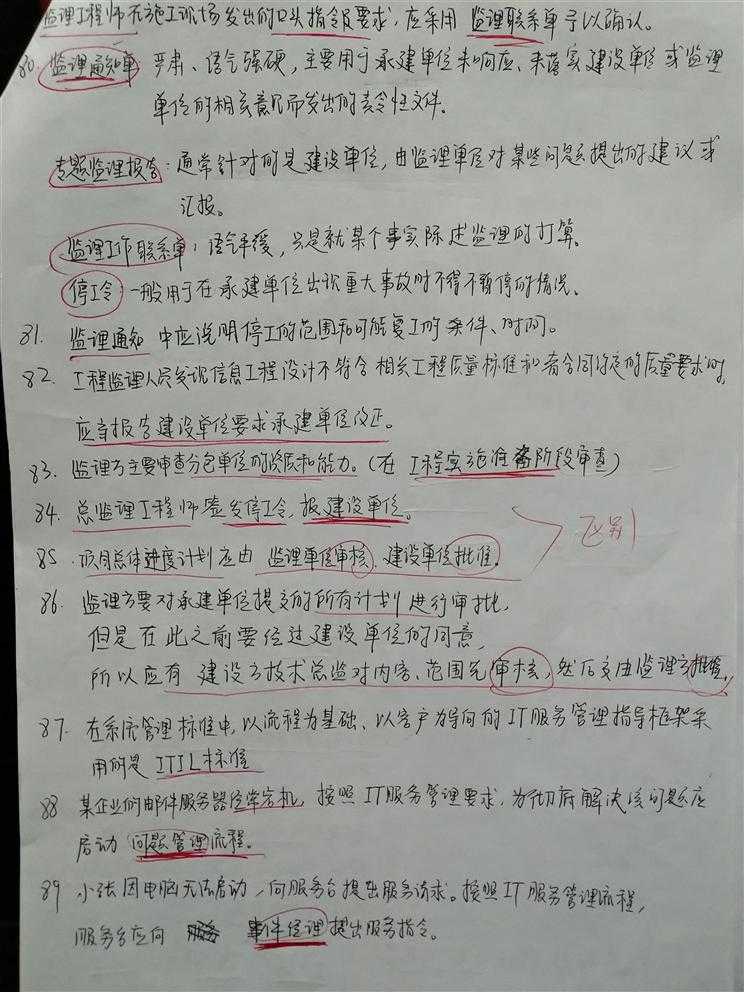 监理工程师在施工现场发出的口头指令及要求，应采用 监理联系单予以确认。
80. 监理通知单：严肃、语气强硬，主要用于承建单位未响应、未落实建设单位或监理
单位的相关意见而发出的责令性文件。
专题监理报告：通常针对的是建设单位，由监理单位对某些问题提出的建议或
汇报。
监理工作联系单：语气平缓，只是就某个事实陈述监理的打算。
停工令：一般用于在承建单位出现重大事故时不得不暂停的情况。
81. 监理通知 中应说明停工的范围和可能复工的条件、时间。
82. 工程监理人员发现信息工程设计不符合相关工程质量标准和者合同约定的质量要求时，
应当报告建设单位要求承建单位改正。
83. 监理方主要审查分包单位的资质和能力。（在 工程实施准备阶段审查）
84. 总监理工程师签发停工令，报建设单位。
区别
85. 项目总体进度计划应由 监理单位审核，建设单位批准。
86. 监理方要对承建单位提交的所有计划进行审批，
但是在此之前要经过建设单位的同意，
所以应有 建设方技术总监对内容、范围先审核，然后交由监理方批准。
87. 在系统管理标准中，以流程为基础、以客户为导向的IT服务管理指导框架采
用的是 ITIL标准
88 某企业的邮件服务器经常宕机，按照IT服务管理要求，为彻底解决该问题应
启动 问题管理流程。
89 小张因电脑无法启动，向服务台提出服务请求。按照IT服务管理流程，
服务台应向 事件经理提出服务指令。